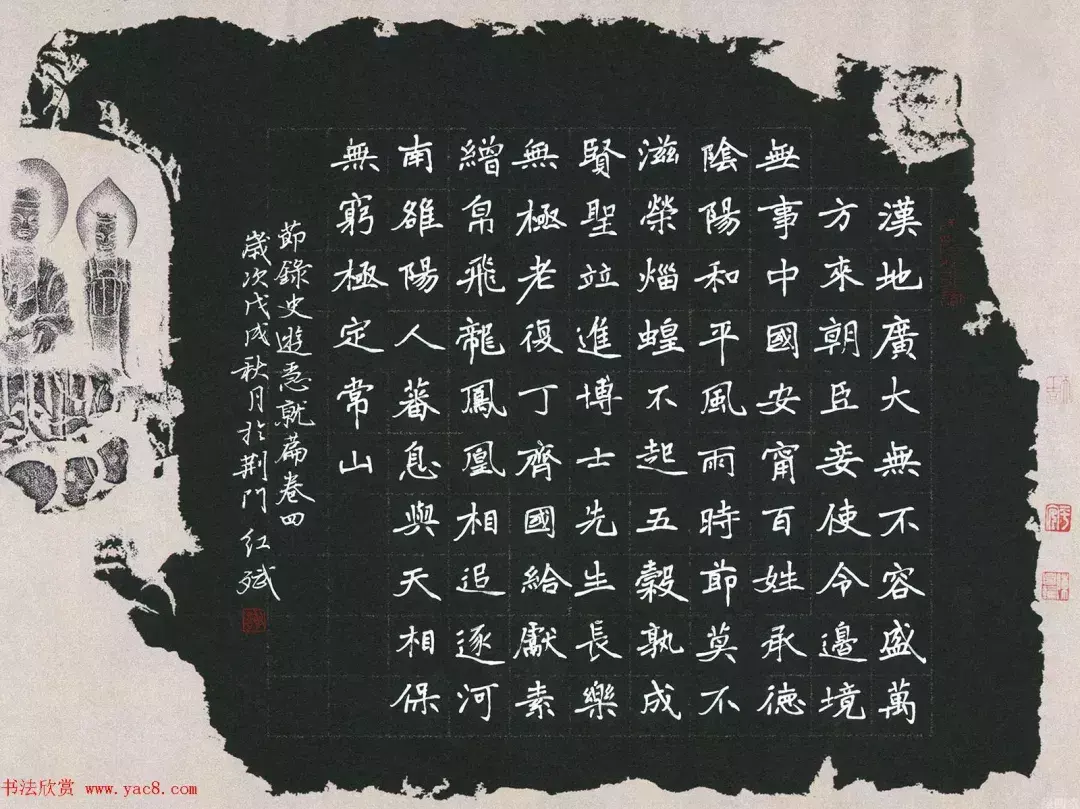 漢地廣大無不容盛萬
方來朝臣妾使令邊境
無事中國安甯百姓承德
陰陽和平風雨時節莫不
滋榮蝗不起五穀孰成
賢聖竝進博士先生長樂
無極老復丁齊國給獻素
繒帛飛龍鳳凰相追逐河
南雒陽人蕃息與天相保
無窮極定常山
節錄史遊急就篇卷四
歲次戊戌秋月於荆門 红斌
书法欣赏 www.yac8.com